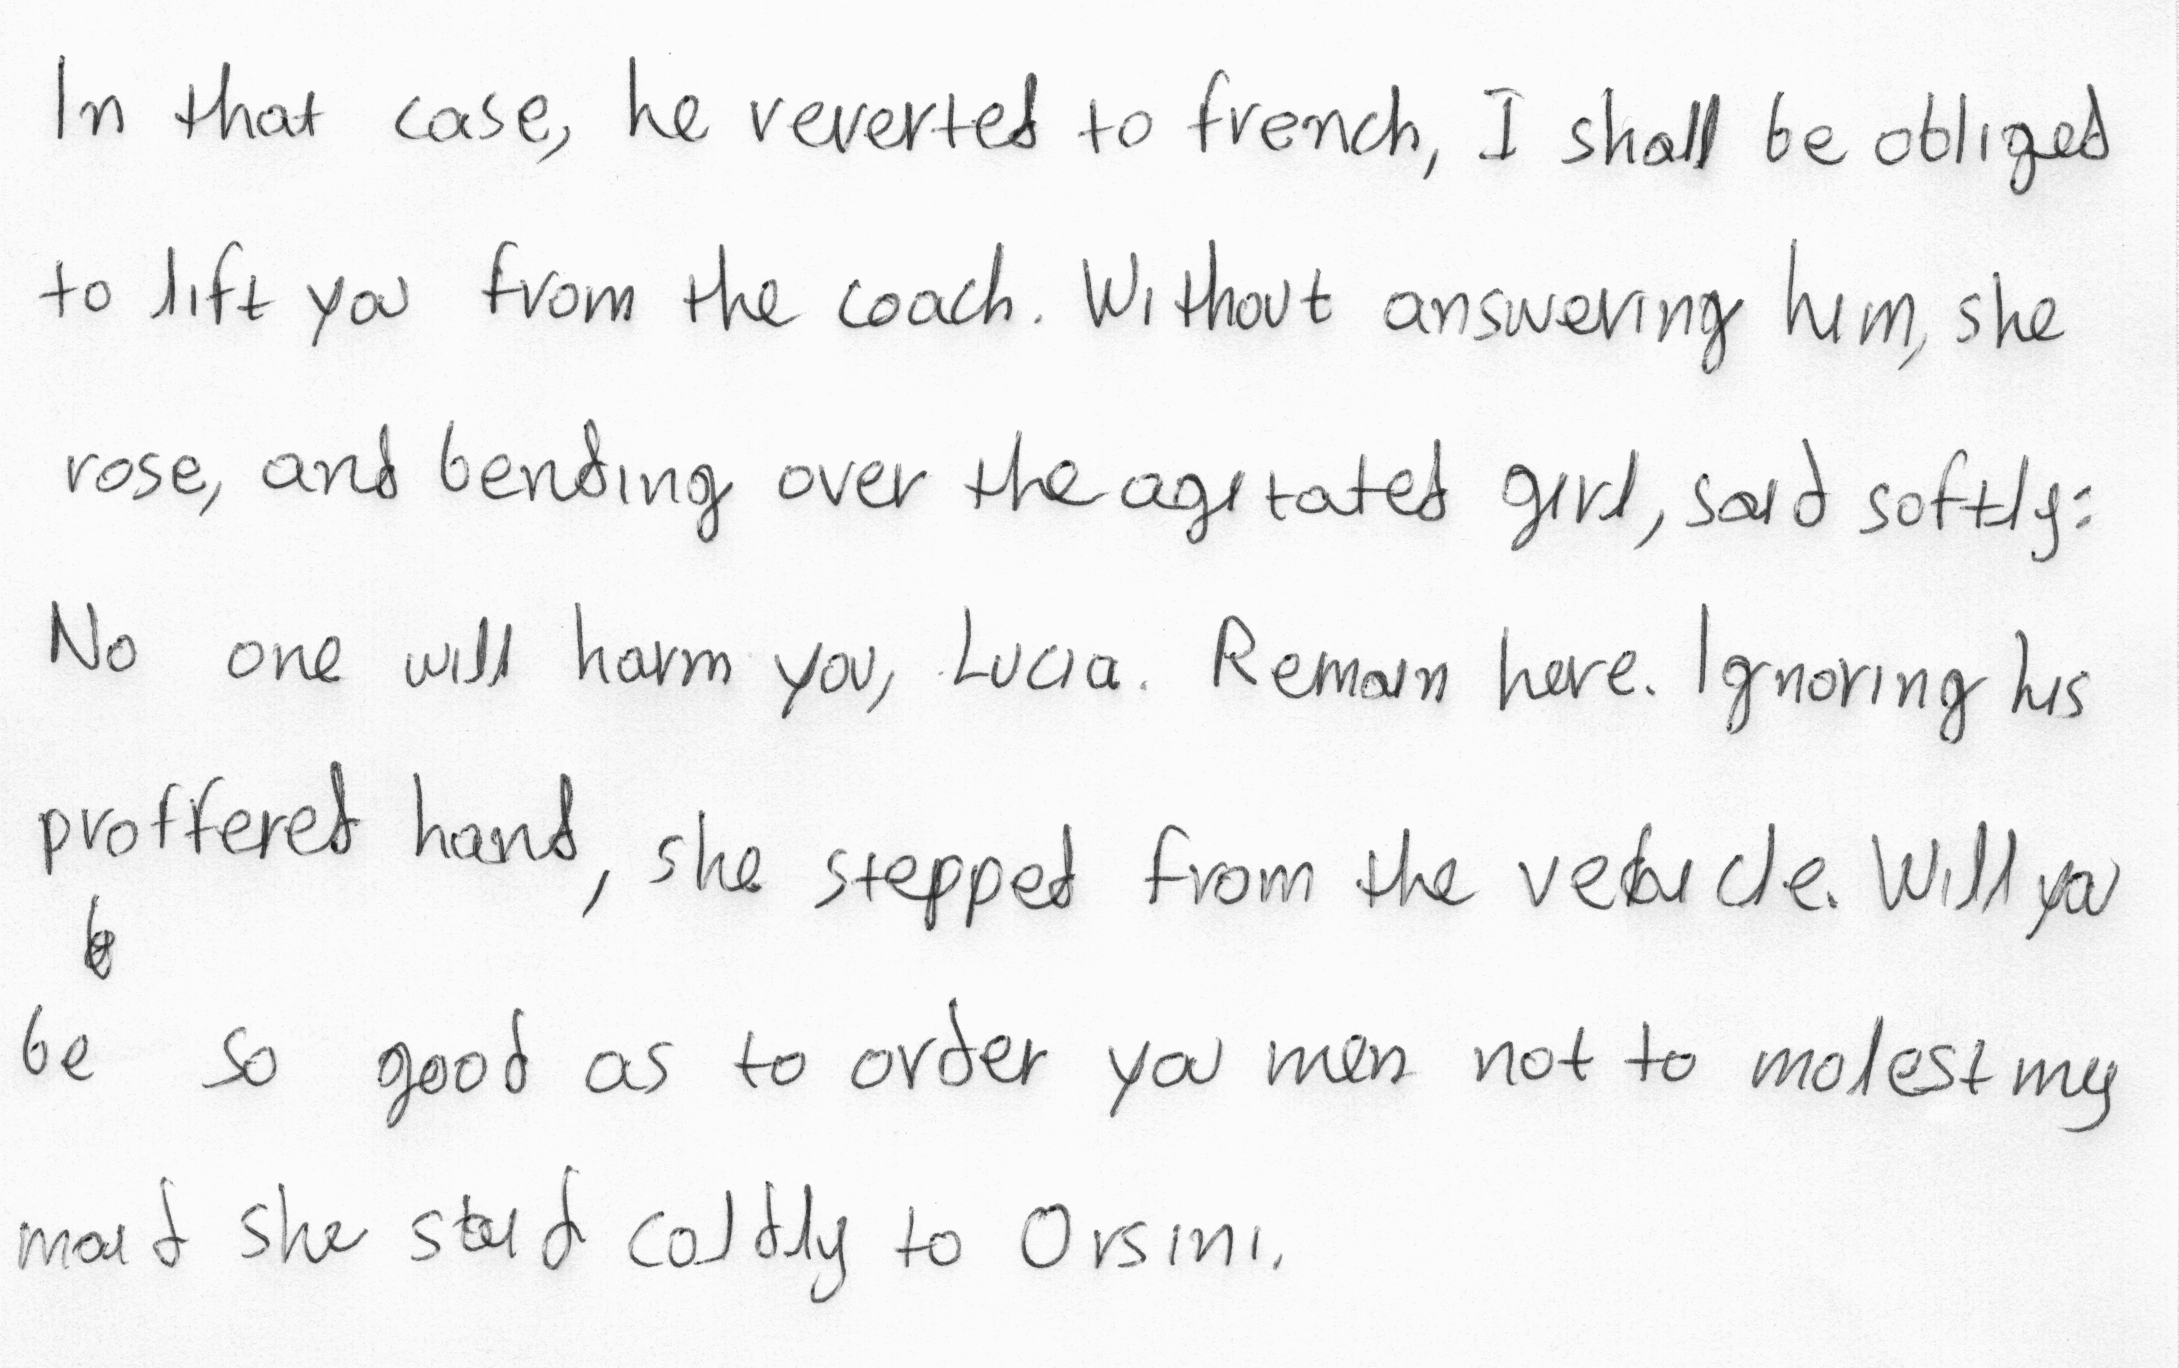 In that case, he reverted to french, I shall be obliged
to lift you from the coach. Without answering him, she
rose, and bending over the agitated girl, said softly:
No one will harm you, Lucia. Remain here. Ignoring his
proffered hand, she stepped from the vehicle. Will you
be so good as to order you men not to molest my
maid she said coldly to Orsini.